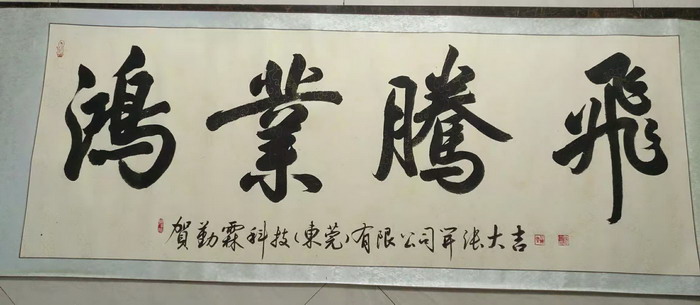 鴻業騰飛
賀勤霖科技(東莞)有限公司開張大吉